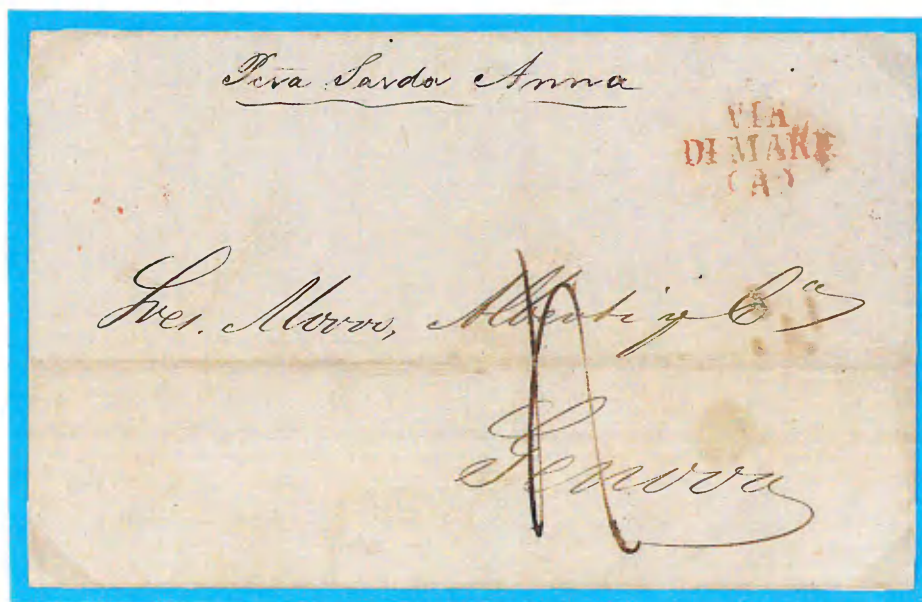 Sarda Anna
VIA
DI MARE
(A)
Sres. Moro, Alberti y Cª
Genova